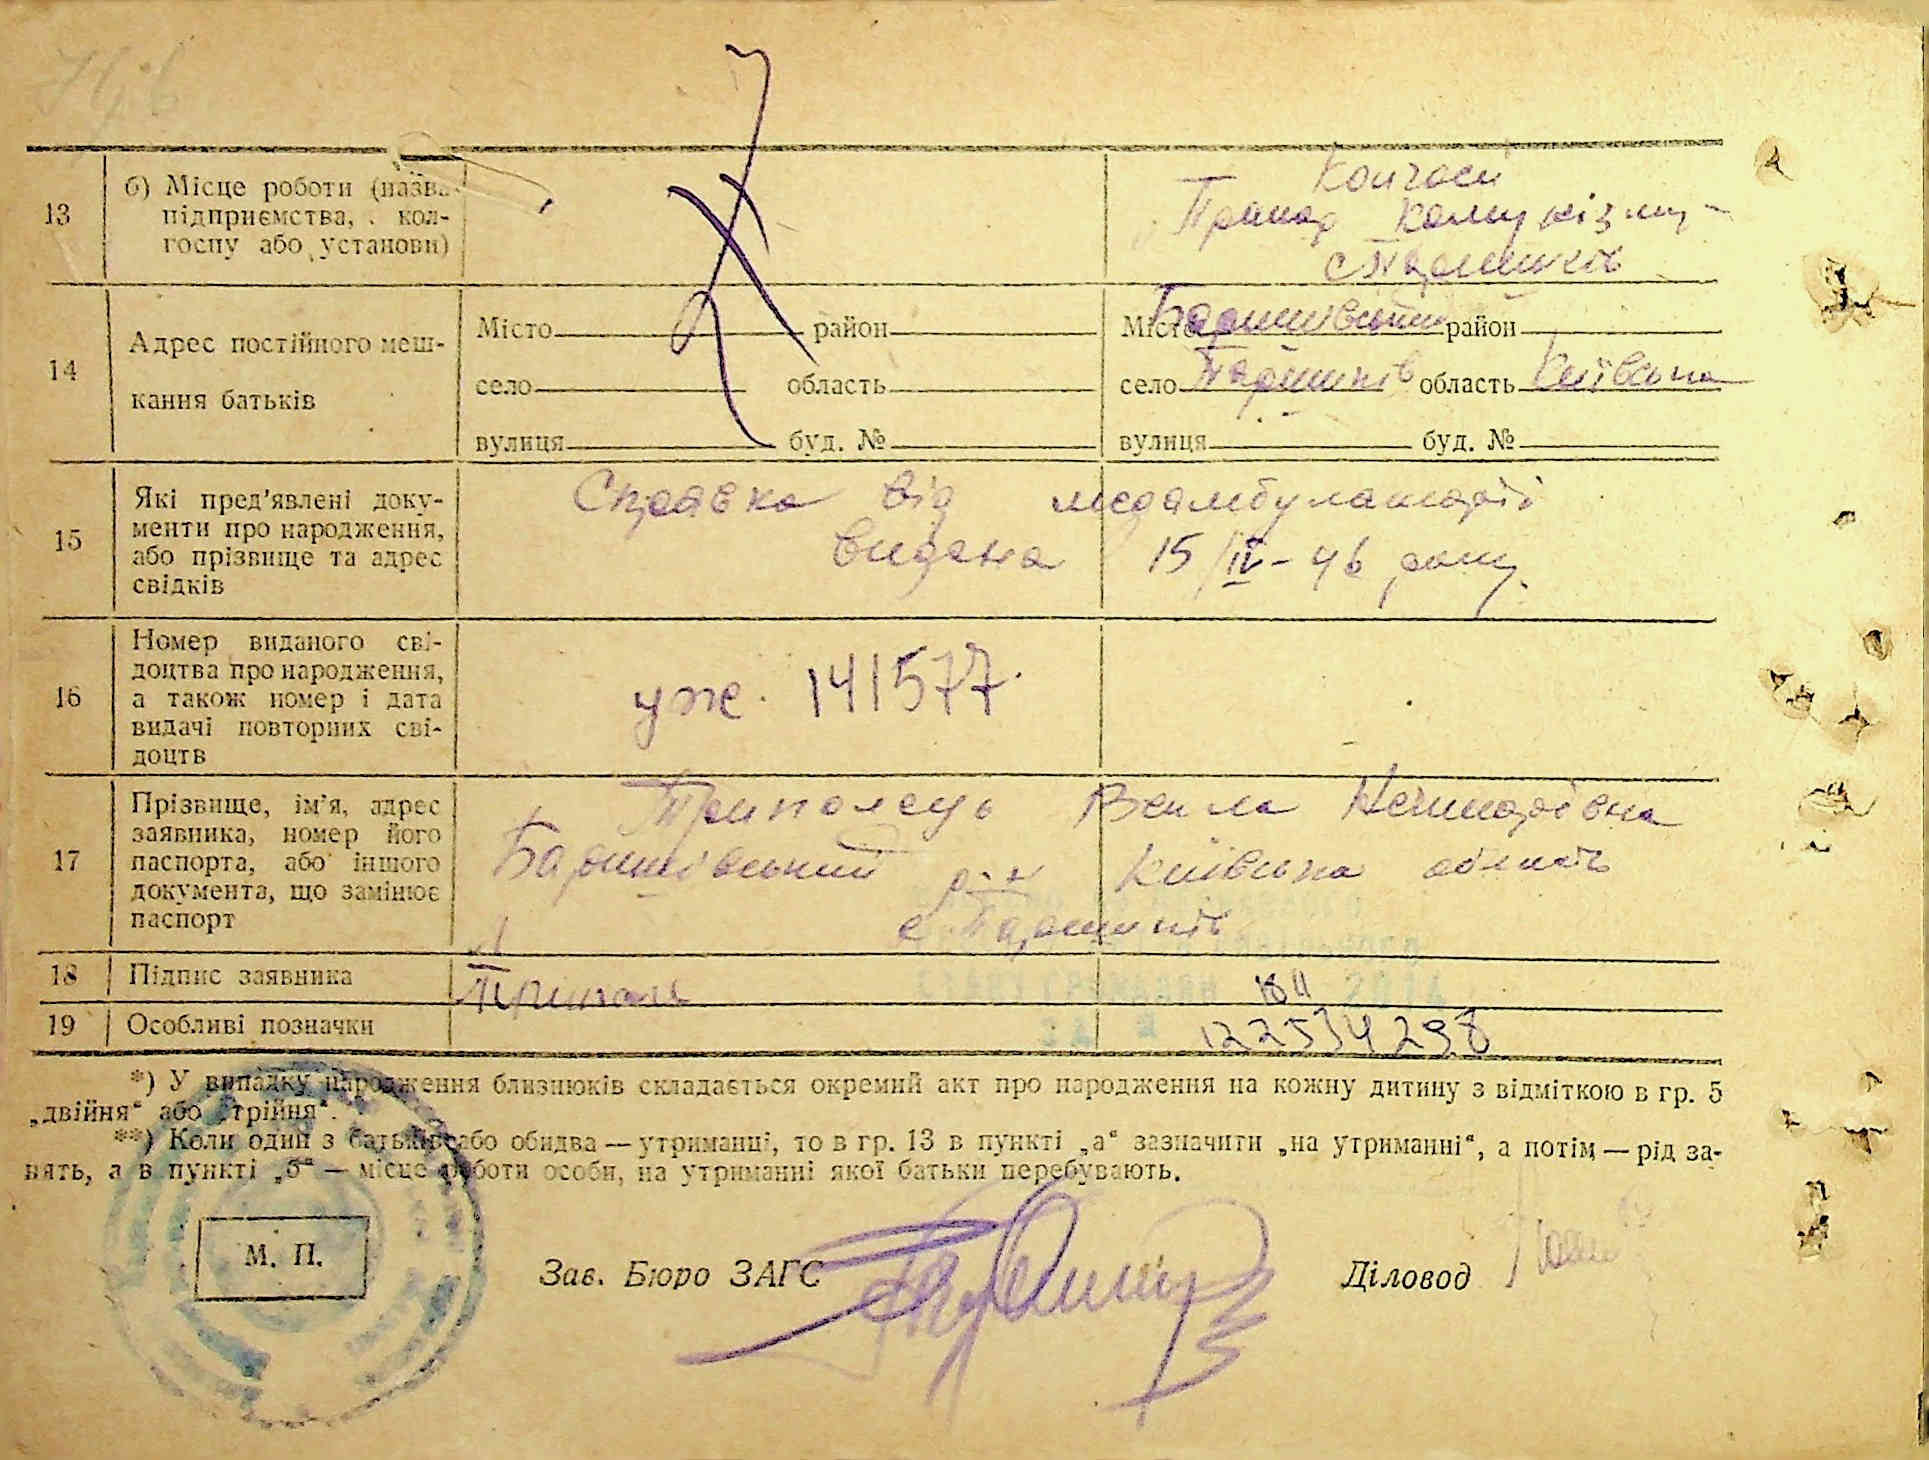 13
б) Місце роботи (назва
підприємства, кол-
госпу або установи)
Колгосп
Прапор комунізму
с Паришків
14
Адрес постійного меш-
кання батьків
Місто район
село область
вулиця буд. №
Місто Баришівський район
село Паришків область Київська
вулиця буд. №
15
Які пред'явлені доку-
менти про народження,
або прізвище та адрес
свідків
Справка від медамбулаторії
видана 15/IV-46 року
16
Номер виданого сві-
доцтва про народження,
а також номер і дата
видачі повторних сві-
доцтв
уж. 141577.
17
Прізвище, ім'я, адрес
заявника, номер його
паспорта, або іншого
документа, що замінює
паспорт
Триполець Векла
Баришівський р-н Київська область
с Паришків
18
Підпис заявника
19
Особливі позначки
*) У випадку народження близнюків складається окремий акт про народження на кожну дитину з відміткою в гр. 5
„двійня“ або „трійня“.
**) Коли один з батьків або обидва — утриманці, то в гр. 13 в пункті „а“ зазначити „на утриманні“, а потім — рід за-
нять, а в пункті „б“ — місце роботи особи, на утриманні якої батьки перебувають.
М. П.
Зав. Бюро ЗАГС
Діловод